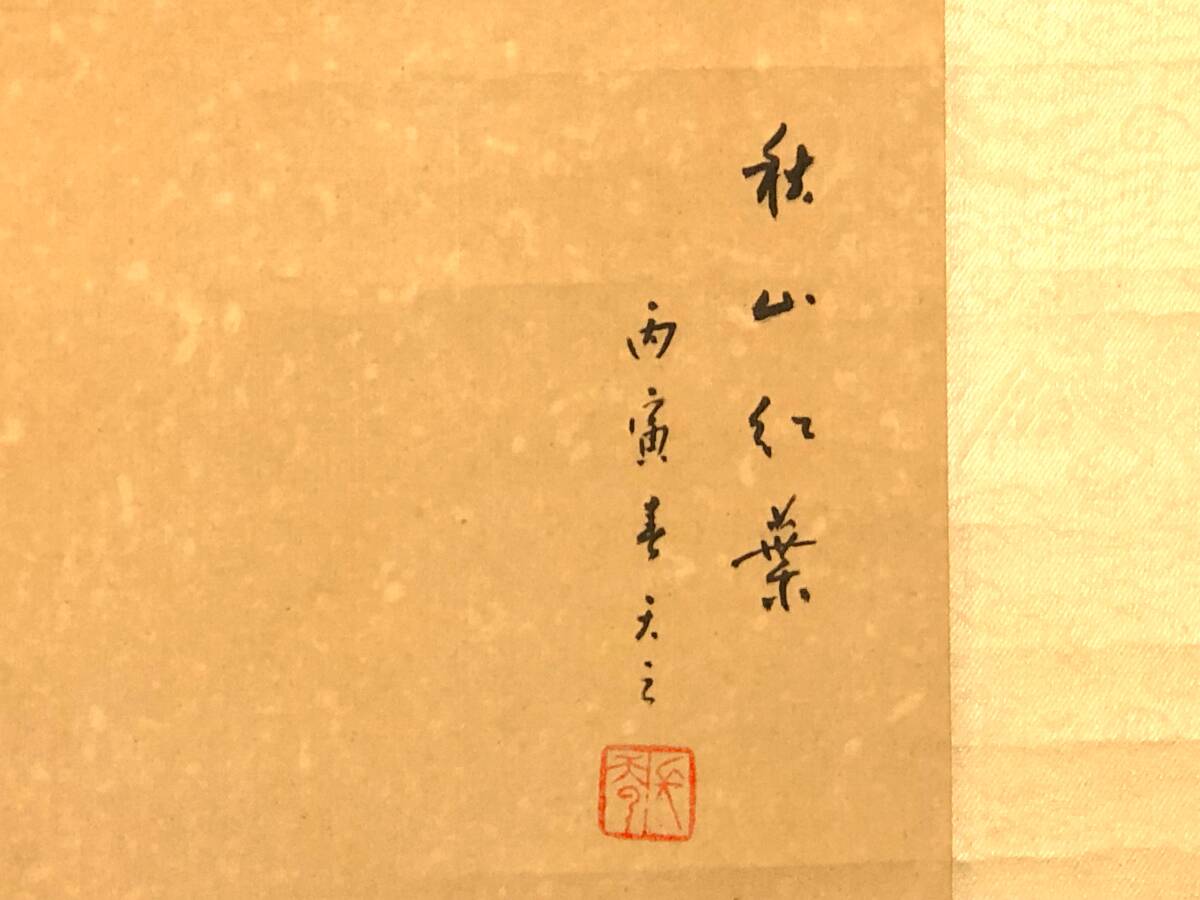 秋山红葉
丙寅春天之